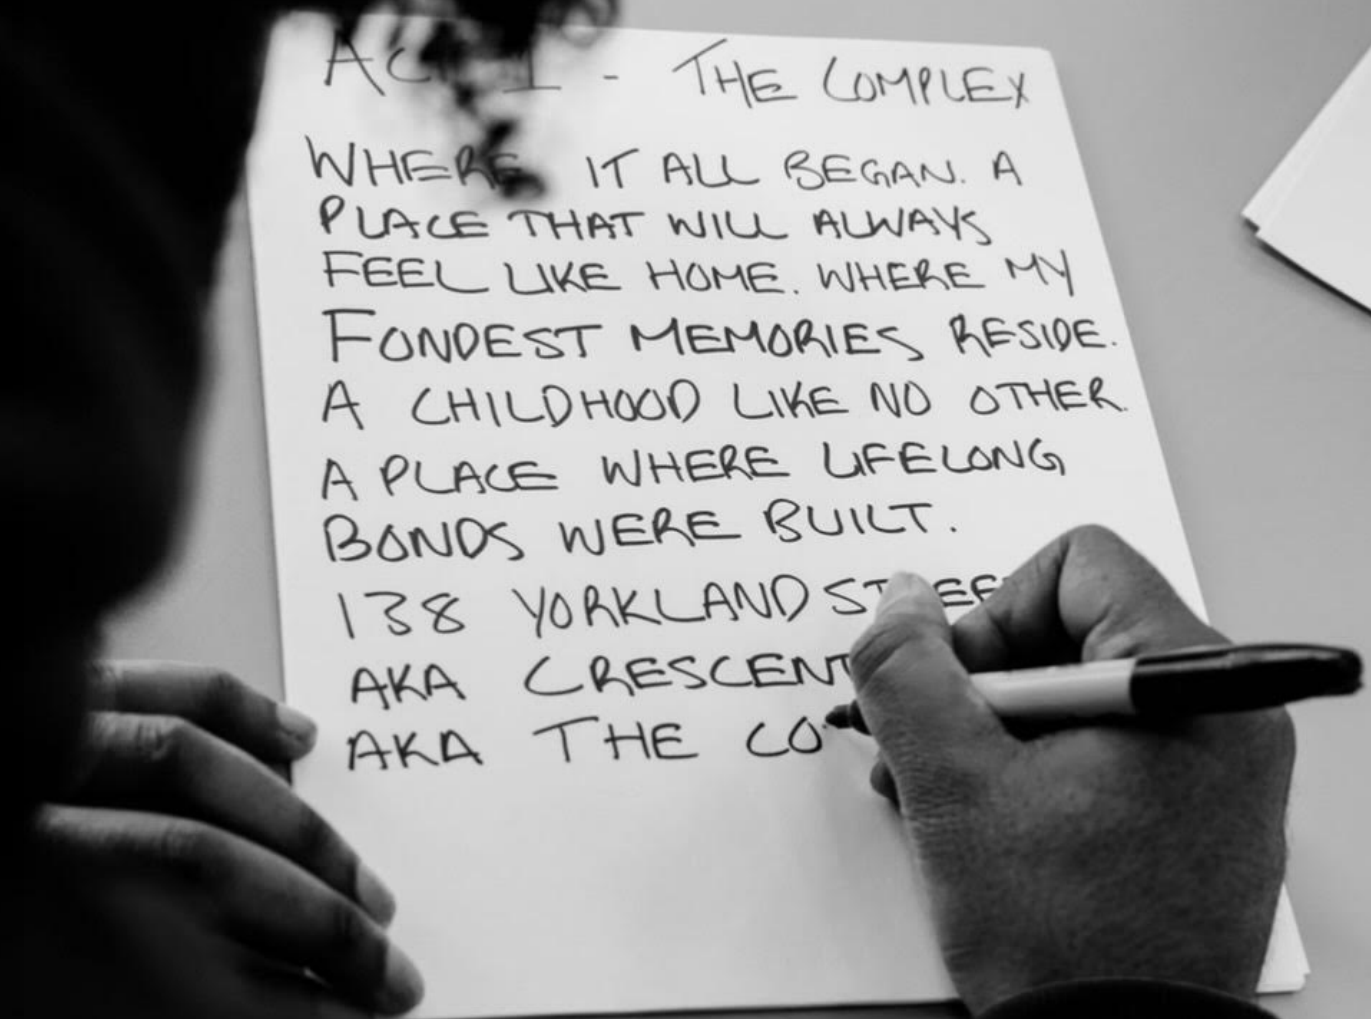 ACT I - THE COMPLEX
WHERE IT ALL BEGAN. A
PLACE THAT WILL ALWAYS
FEEL LIKE HOME. WHERE MY
FONDEST MEMORIES RESIDE.
A CHILDHOOD LIKE NO OTHER.
A PLACE WHERE LIFELONG
BONDS WERE BUILT.
138 YORKLAND
AKA CRESCENT
AKA THE CO